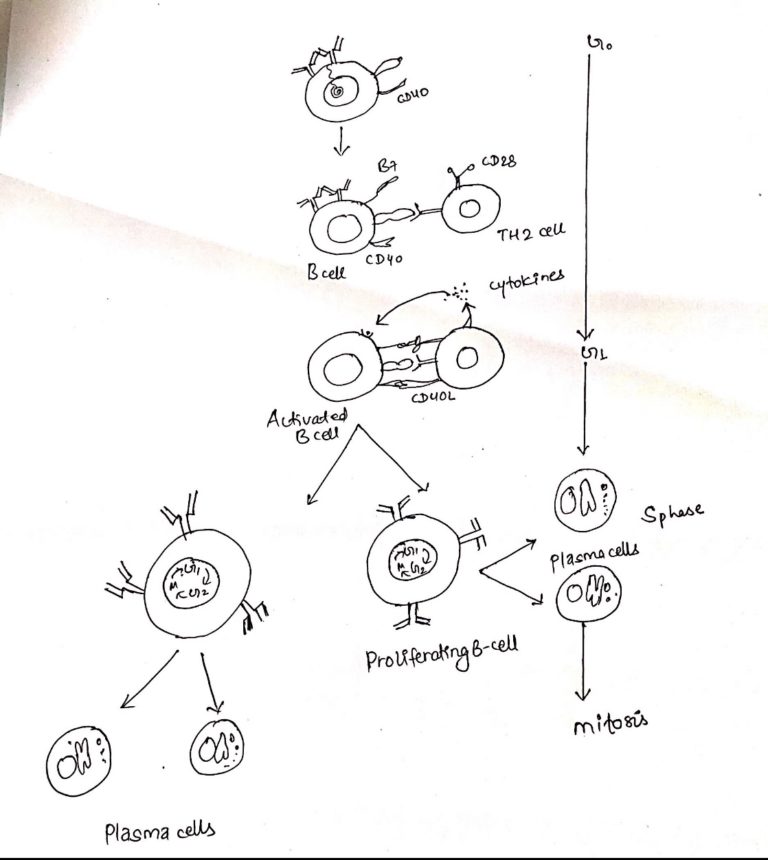 G0
CD40
B7
CD28
TH2 cell
CD40
B cell
cytokines
G1
CD40L
Activated
B cell
S phase
Plasma cells
G1
M
G2
G1
M
G2
Proliferating B-cell
mitosis
Plasma cells